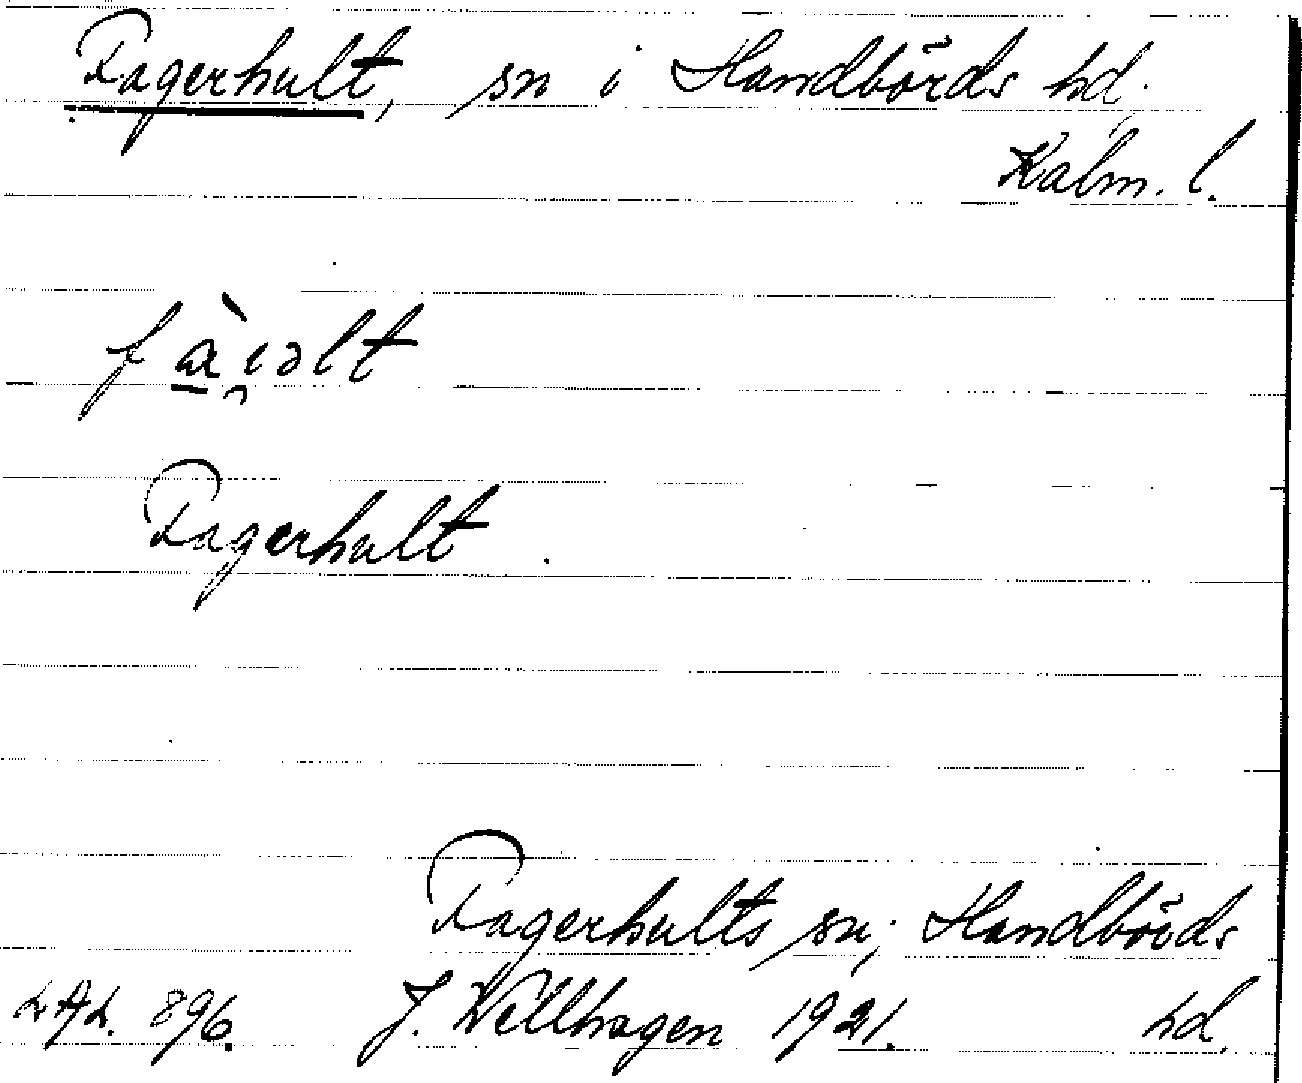 Fagerhult, sn i Handbörds hd.
Kalm. l.
Fagerhult.
Fagerhults sn; Handbörds
LAL. 896. J. Wellhagen 1921. hd.